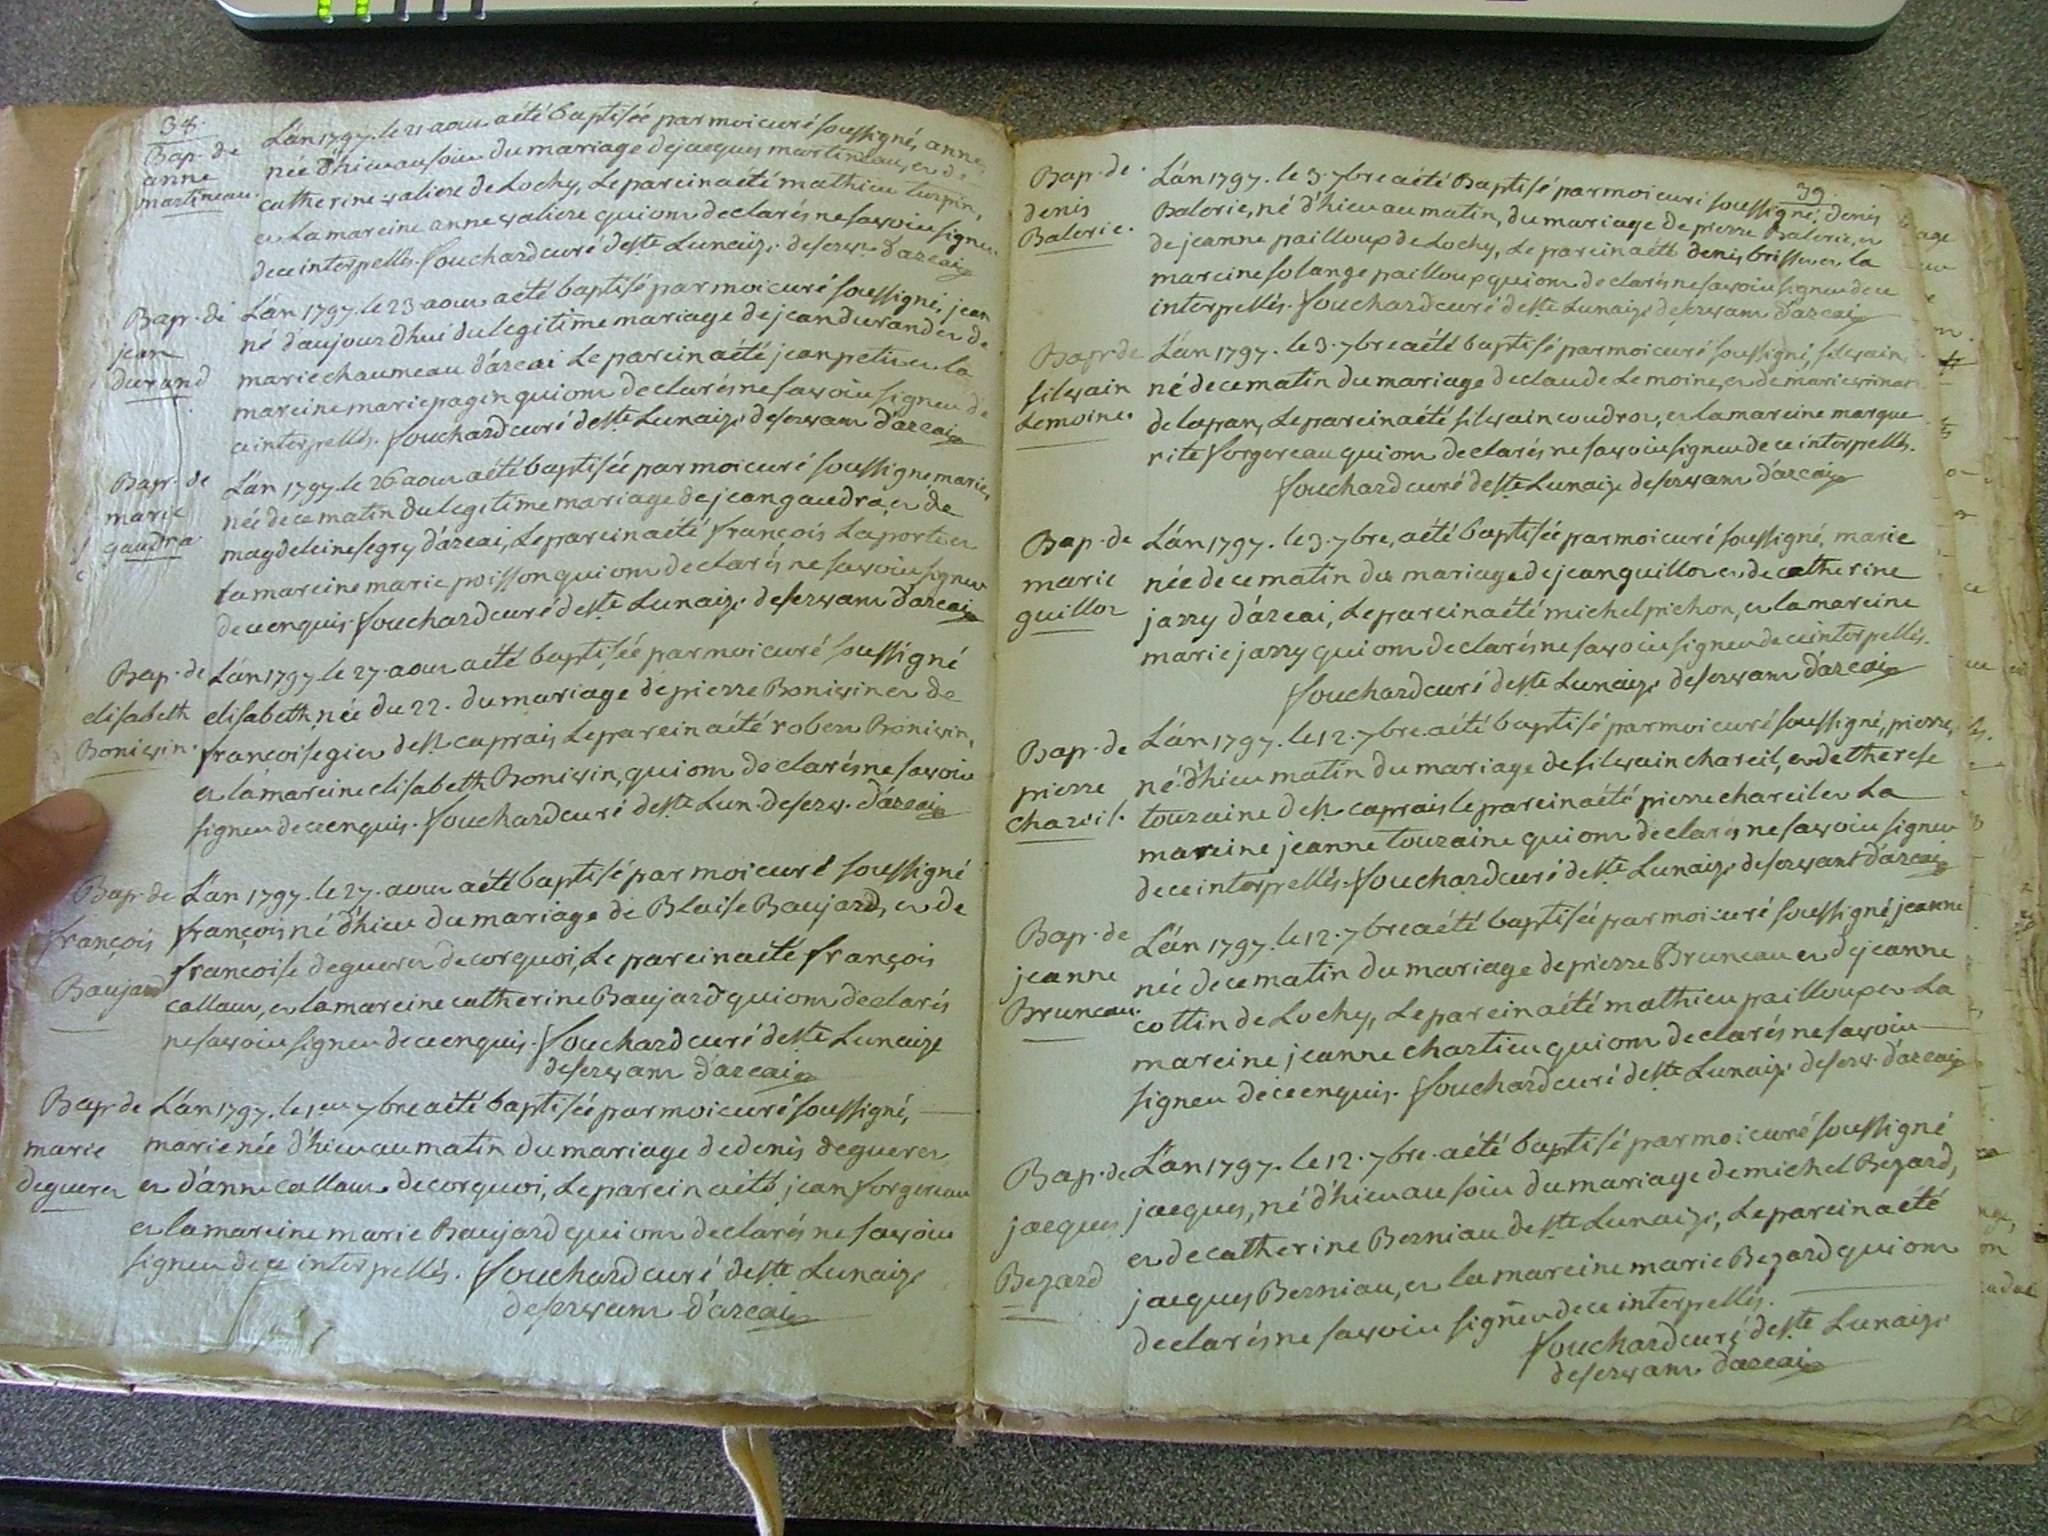 38.
Bap. de
anne
martineau.
Lán 1797. le 21 aout aété baptisée par moi curé soussigné, anne
née d'hier au soir du mariage de jacques martineau, et de
catherine valiere de Lochy, Le parein aété mathieu turpin,
et La mareine anne valiere qui ont declarés ne savoir signer
de ce interpellés. fouchard curé de ste Lunaize deserv. d'arcai
Bap. de
jean
durand
Lán 1797. le 23 aout aété baptisé par moi curé soussigné, jean
né d'aujourdhui du legitime mariage de jean durand et de
marie chaumeau d'arcai Le parein aété jean petit et la
mareine marie pagen qui ont declarés ne savoir signer de
ce interpellés. fouchard curé de ste Lunaize deservant d'arcai
Bap. de
marie
gaudra
Lán 1797. le 26 aout aété baptisée par moi curé soussigné marie,
née de ce matin du legitime mariage de jean gaudra, et de
magdeleine segry d'arcai, Le parein aété françois Laporte et
la mareine marie poisson qui ont declarés ne savoir signer
de ce enquis. fouchard curé de ste Lunaize deservant d'arcai
Bap. de
elisabeth
Bonivin.
Lán 1797. le 27. aout aété baptisée par moi curé soussigné
elisabeth née du 22. du mariage de pierre Bonivin et de
francoise giet de st caprais Le parein aété robert Bonivin,
et la mareine elisabeth Bonivin, qui ont declarés ne savoir
signer de ce enquis. fouchard curé de ste Lun. deserv. d'arcai
Bap. de
françois
Baujard
Lán 1797. le 27. aout aété baptisé par moi curé soussigné
françois né d'hier du mariage de Blaise Baujard, et de
francoise degueret de corquoi, Le parein aété françois
callaut, et la mareine catherine Baujard qui ont declarés
ne savoir signer de ce enquis. fouchard curé de ste Lunaize
deservant d'arcai
Bap. de
marie
degueret
Lán 1797. le 1er 7bre aété baptisée par moi curé soussigné,
marie née d'hier au matin du mariage de denis degueret
et d'anne callaut de corquoi, Le parein aété jean forgereau
et la mareine marie Baujard qui ont declarés ne savoir
signer de ce interpellés. fouchard curé de ste Lunaize
deservant d'arcai
39.
Bap. de
denis
Balorie.
Lán 1797. le 3. 7bre aété Baptisé par moi curé soussigné, denis
Balorie, né d'hier au matin, du mariage de pierre Balorie, et
de jeanne pailloup de Lochy, Le parein aété denis brisset et la
mareine solange pailloup qui ont declarés ne savoir signer de ce
interpellés. fouchard curé de ste Lunaize deservant d'arcai
Bap. de
silvain
Lemoine.
Lán 1797. le 3. 7bre aété baptisé par moi curé soussigné, silvain,
né de ce matin du mariage de claude Lemoine, et de marie
de lapan, Le parein aété silvain coudret, et la mareine margue
rite forgereau qui ont declarés ne savoir signer de ce interpellés.
fouchard curé de ste Lunaize deservant d'arcai
Bap. de
marie
guillot
Lán 1797. le 3. 7bre, aété baptisée par moi curé soussigné, marie
née de ce matin du mariage de jean guillot et de catherine
jarry d'arcai, Le parein aété michel pichon, et la mareine
marie jarry qui ont declarés ne savoir signer de ce interpellés.
fouchard curé de ste Lunaize deservant d'arcai
Bap. de
pierre
chareil.
Lán 1797. le 12. 7bre aété baptisé par moi curé soussigné, pierre,
né d'hier matin du mariage de silvain chareil, et de therese
touraine de st caprais le parein aété pierre chareil et La
mareine jeanne touraine qui ont declarés ne savoir signer
de ce interpellés. fouchard curé de ste Lunaize deservant d'arcai
Bap. de
jeanne
Bruneau.
Lán 1797. le 12. 7bre aété baptisée par moi curé soussigné jeanne
née de ce matin du mariage de pierre Bruneau et de jeanne
cottin de Lochy, Le parein aété mathieu pailloup et La
mareine jeanne chartier qui ont declarés ne savoir
signer de ce enquis. fouchard curé de ste Lunaize deserv. d'arcai
Bap. de
jacques
Bezard
Lán 1797. le 12. 7bre. aété baptisé par moi curé soussigné
jacques, né d'hier au soir du mariage de michel Bezard,
et de catherine Berniau de ste Lunaize, Le parein aété
jacques Berniau, et la mareine marie Bezard qui ont
declarés ne savoir signer de ce interpellés.
fouchard curé de ste Lunaize
deservant d'arcai